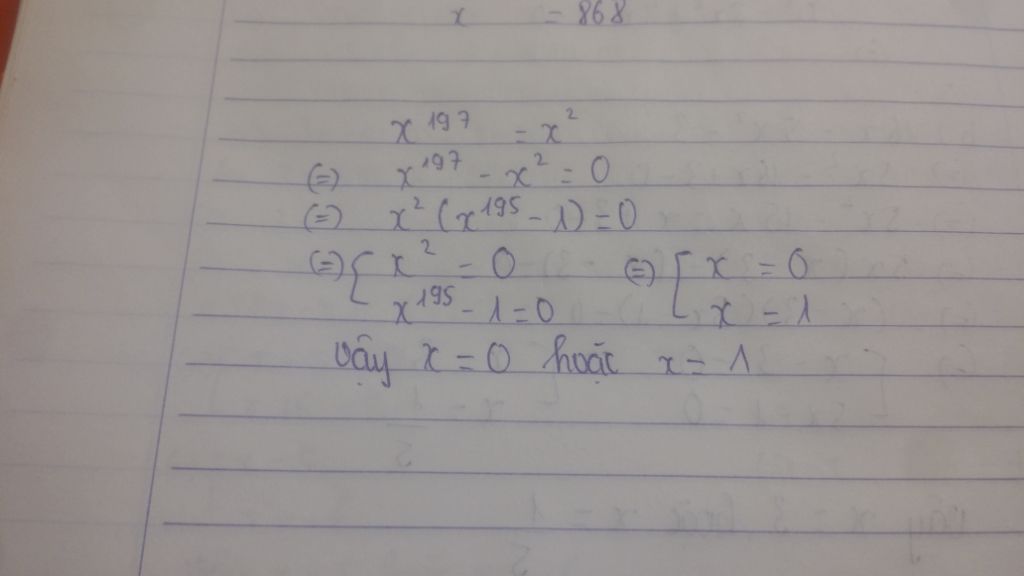 x = 868
x¹⁹⁷ = x²
(=) x¹⁹⁷ - x² = 0
(=) x² (x¹⁹⁵ - 1) = 0
(=) [ x² = 0 (=) [ x = 0
x¹⁹⁵ - 1 = 0 x = 1
vậy x = 0 hoặc x = 1